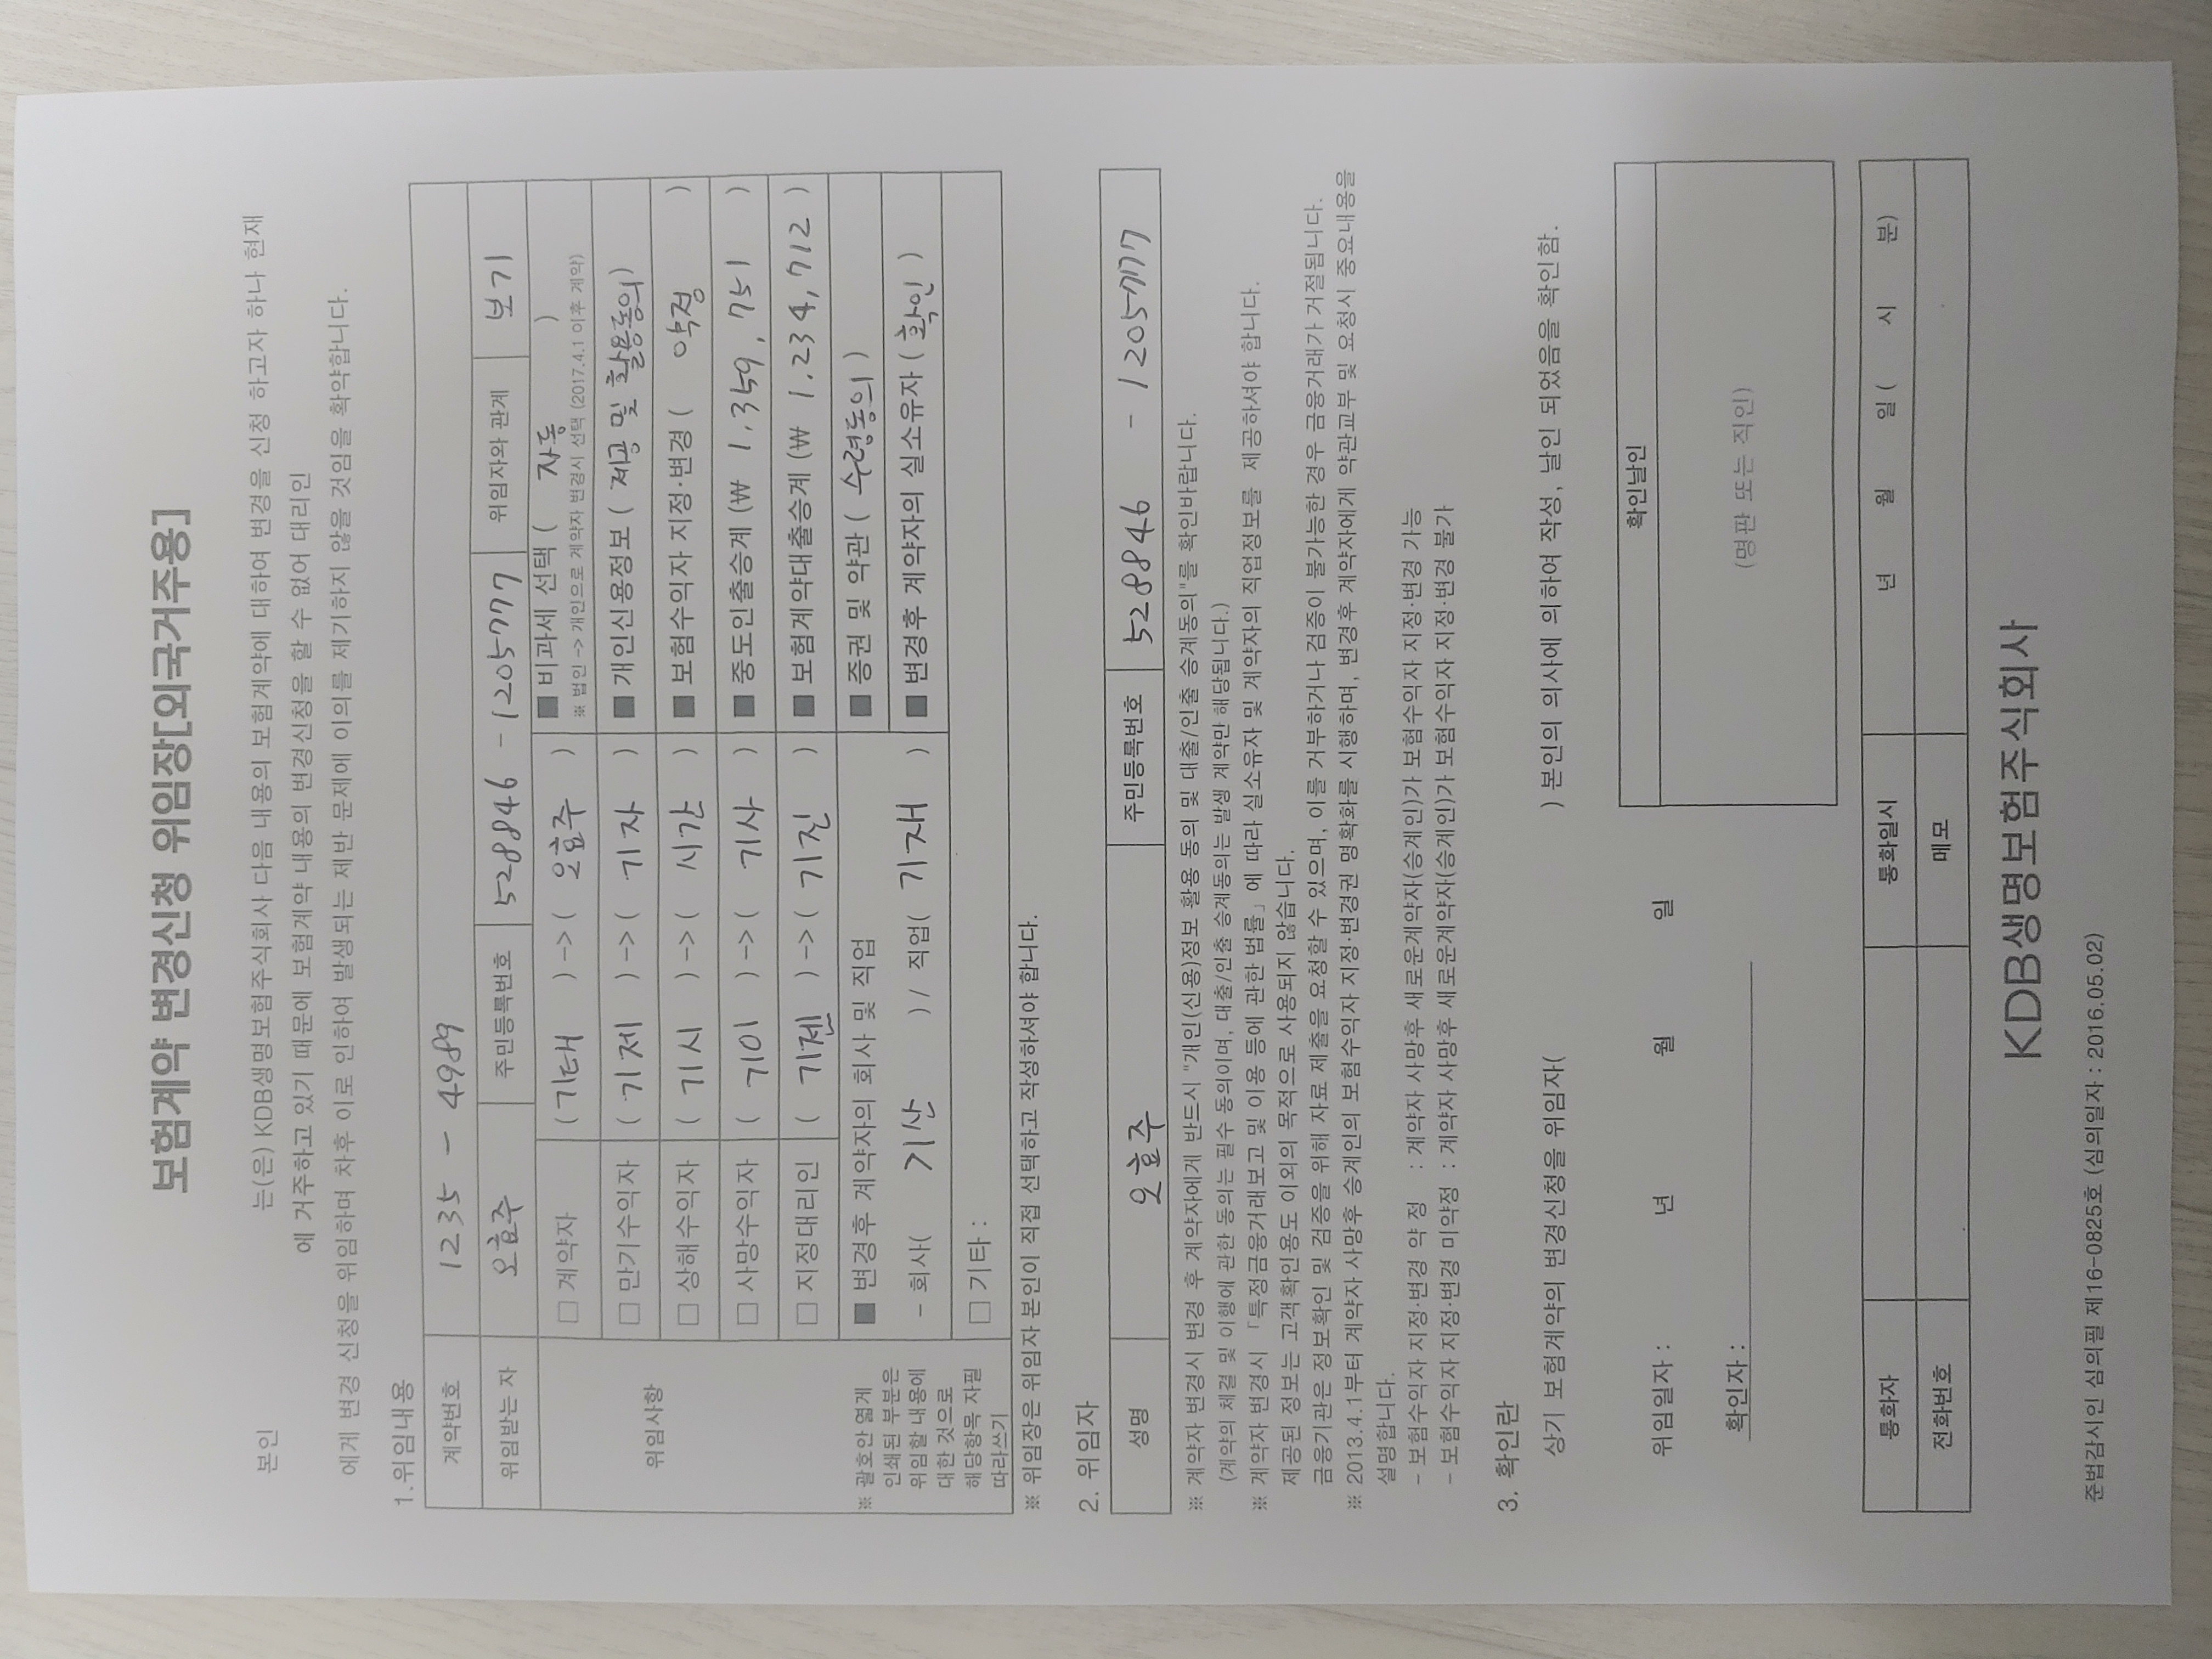 보험계약 변경신청 위임장[외국거주용]
본인 는(은) KDB생명보험주식회사 다음 내용의 보험계약에 대하여 변경을 신청 하고자 하나 현재
에 거주하고 있기 때문에 보험계약 내용의 변경신청을 할 수 없어 대리인
에게 변경 신청을 위임하며 차후 이로 인하여 발생되는 제반 문제에 이의를 제기하지 않을 것임을 확약합니다.
1.위임내용
계약번호 1235 - 4989
위임받는 자 오효주 주민등록번호 528846 - 1205777 위임자와 관계 보기
위임사항
□ 계약자 (기태) -> (오효주) ■ 비과세 선택 (자동)
※ 법인 -> 개인으로 계약자 변경시 선택 (2017.4.1 이후 계약)
□ 만기수익자 (기제) -> (기자) ■ 개인신용정보 (제공 및 활용동의)
□ 상해수익자 (기시) -> (시간) ■ 보험수익자 지정·변경 (약정)
□ 사망수익자 (기이) -> (기사) ■ 중도인출승계 (₩ 1,359,751)
□ 지정대리인 (기젠) -> (기진) ■ 보험계약대출승계 (₩ 1.234,712)
※ 괄호안 엷게
인쇄된 부분은
위임할 내용에
대한 것으로
해당항목 자필
따라쓰기
■ 변경후 계약자의 회사 및 직업 ■ 증권 및 약관 (수령동의)
- 회사(기산) / 직업(기재) ■ 변경후 계약자의 실소유자 (확인)
□ 기타 :
※ 위임장은 위임자 본인이 직접 선택하고 작성하셔야 합니다.
2. 위임자
성명 오효주 주민등록번호 528846 - 1205777
※ 계약자 변경시 변경 후 계약자에게 반드시 "개인(신용)정보 활용 동의 및 대출/인출 승계동의"를 확인바랍니다.
(계약의 체결 및 이행에 관한 동의는 필수 동의이며, 대출/인출 승계동의는 발생 계약만 해당됩니다.)
※ 계약자 변경시 「특정금융거래보고 및 이용 등에 관한 법률」에 따라 실소유자 및 계약자의 직업정보를 제공하셔야 합니다.
제공된 정보는 고객확인용도 이외의 목적으로 사용되지 않습니다.
금융기관은 정보확인 및 검증을 위해 자료 제출을 요청할 수 있으며, 이를 거부하거나 검증이 불가능한 경우 금융거래가 거절됩니다.
※ 2013.4.1부터 계약자 사망후 승계인의 보험수익자 지정·변경권 명확화를 시행하며, 변경후 계약자에게 약관교부 및 요청시 중요내용을
설명합니다.
- 보험수익자 지정·변경 약 정 : 계약자 사망후 새로운계약자(승계인)가 보험수익자 지정·변경 가능
- 보험수익자 지정·변경 미약정 : 계약자 사망후 새로운계약자(승계인)가 보험수익자 지정·변경 불가
3. 확인란
상기 보험계약의 변경신청을 위임자( ) 본인의 의사에 의하여 작성, 날인 되었음을 확인함.
확인날인
위임일자 : 년 월 일
확인자 :
(명판 또는 직인)
통화자 통화일시 년 월 일 ( 시 분)
전화번호 메모
KDB생명보험주식회사
준법감시인 심의필 제16-0825호 (심의일자 : 2016.05.02)